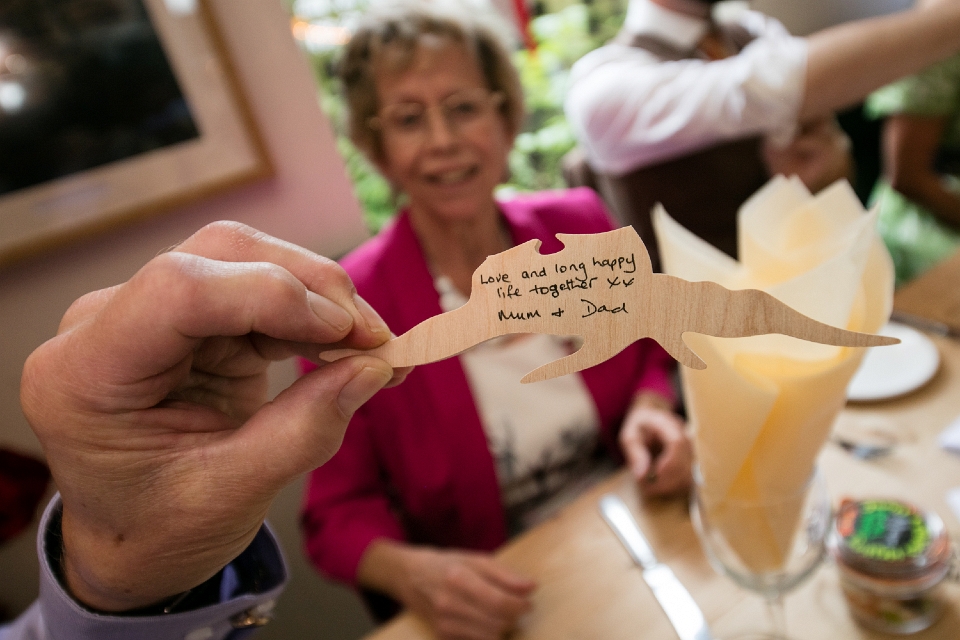 Love and long happy
life together xx
Mum + Dad